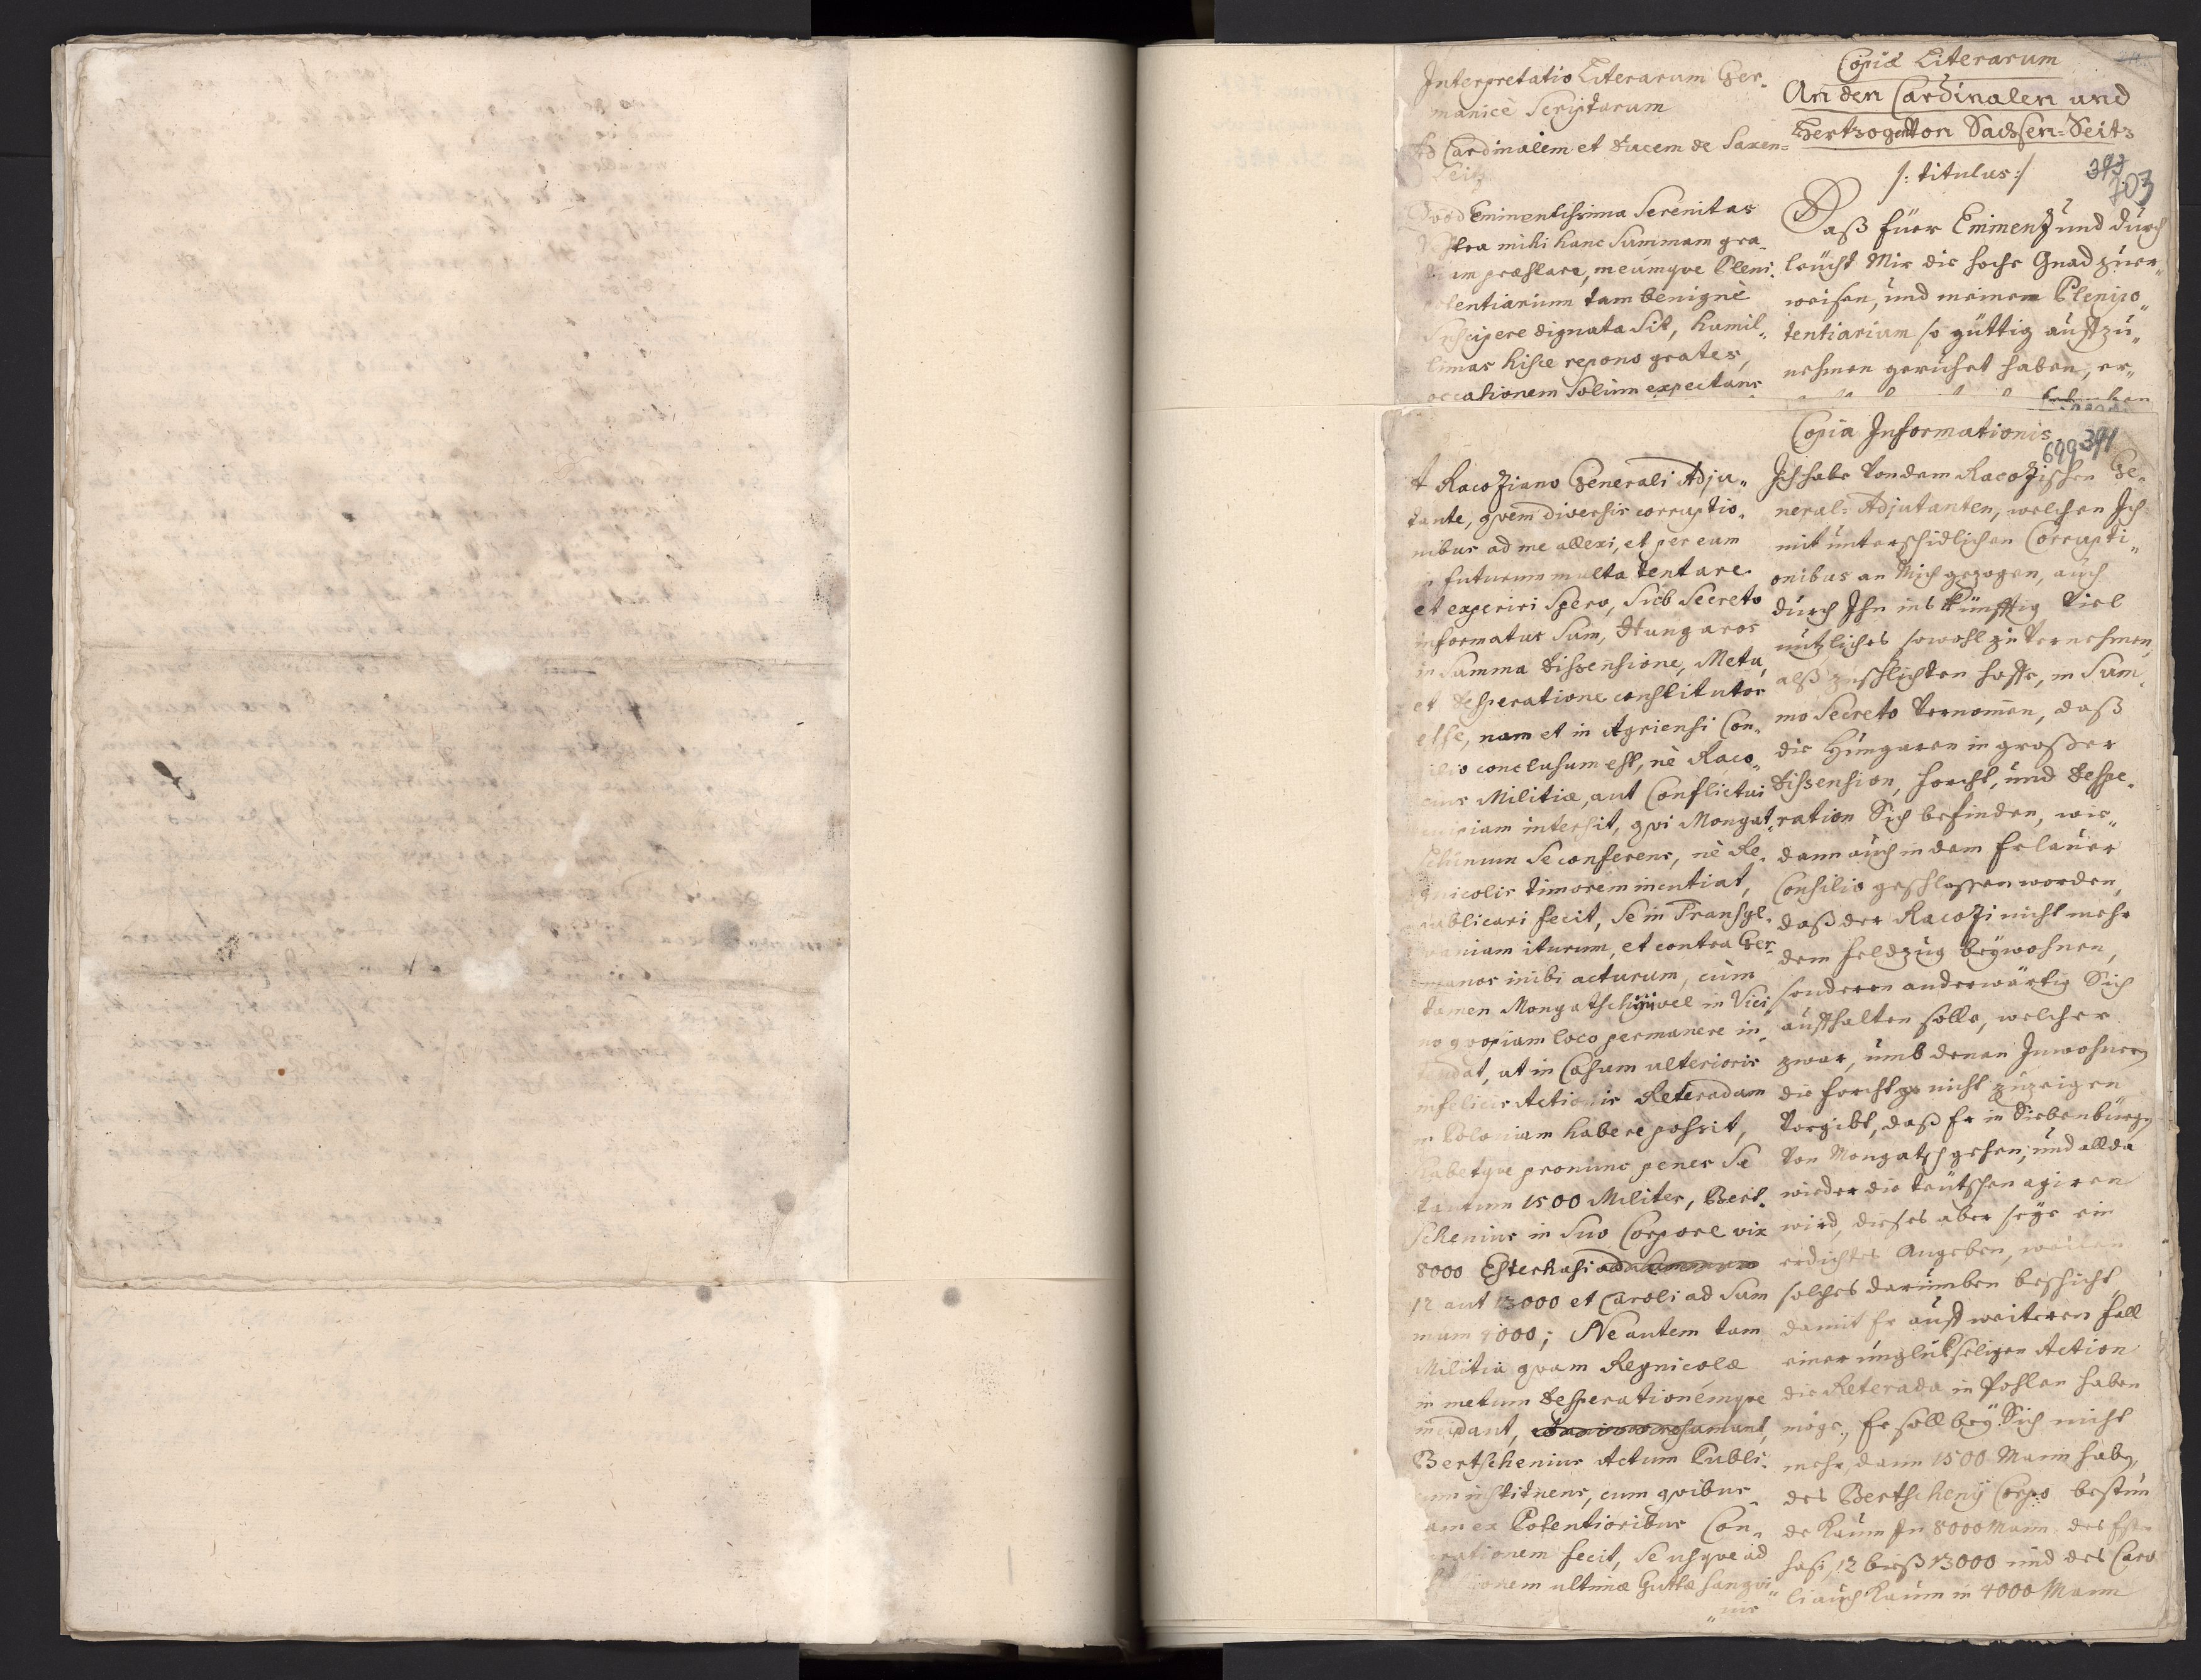 Interpretatio Literarum Ger-
manicè Scriptarum
Ad Cardinalem et Ducem de Saxen-
Seitz
Qvod Eminentissima Serenitas
Vestra mihi hanc Summam gra-
tiam præstare, meumqve Pleni-
potentiarium tam benignè
Suscipere dignata Sit, humil-
limas hisce repono grates,
occasionem Solùm expectans
Copia Literarum
An den Cardinalen und
Hertzogen Von Sachsen-Seitz
/: titulus:/
393
703
Daß Euer Eminenz und Durch
leücht Mir die hohe Gnad zuer-
weisen, und meinem Plenipo-
tentiarium so güttig auffzu-
nehmen geruhet haben, er-
Copia Informationis
699 391
A Racoziano Generali Adju-
tante, qvem diversis corruptio-
nibus ad me allexi, et per eum
in futurum multa tentare
et experiri Spero, Sub Secreto
informatus Sum, Hungaros
in Summa dissensione, Metu,
et desperatione constitutos
esse, nam et in Agriensi Con-
silio conclusum est, nè Raco-
zius Militiæ, aut Conflictui
etiam intersit, qvi Mongat-
schinum Se conferens, nè Re-
gnicolis timorem incutiat,
publicari fecit, Se in Transyl-
vaniam iturum, et contra Ger-
manos inibi acturum, cùm
tamen Mongatschij vel in Vici-
no qvopiam loco permanere in-
tendat, ut in Casum ulterioris
infelicis Actionis Reteradam
in Poloniam habere possit,
habetqve pronunc penes Se
tantum 1500 Milites, Bert-
schenius in Suo Corpore vix
8000 Esterhasi
12 aut 13000 et Caroli ad Sum
mum 4000; Ne autem tam
Militia qvam Regnicolæ
in metum desperationemqve
incidant,
Bertschenius Actum Publi-
cum instituens, cum qvibus-
dam ex Potentioribus Con-
fecit, Se usqve ad
ultimæ Guttæ Sangvi-
nis
Ich habe Von dem Racozischen Ge-
neral-Adjutanten, welchen Ich
mit unterschidlichen Corrupti-
onibus an Mich gezogen, auch
durch Ihn ins künfftig Viel
nutzliches sowohl zu Vernehmen,
alß zuschlichten hoffe, in Sum-
mo Secreto Vernomen, daß
die Hungaren in großer
Dissension, forcht, und Despe-
ration Sich befinden, wie-
dann auch in dem Erlauer
Consilio geschlossen worden,
daß der Racozi nicht mehr
dem feldzug beywohnen,
sonderen anderwärtig Sich
auffhalten solle, welcher
zwar, umb denen Inwohnern
die forcht nicht zuzeigen
Vorgibt, daß Er in Siebenbürgen
Von Mongatsch gehen, und allda
wieder die Teütschen agiren
wird, dieses aber seye ein
erdichtes Angeben, weilen
solches darumben beschicht,
damit Er auff weiteren fall
einer unglückseligen Action
die Reterada in Pohlen haben
möge, Er soll bey Sich nicht
mehr, dann 1500 Mann haben,
des Bertscheny Corpo bestün
de kaum In 8000 Mann des Ester
hasi 12 bieß 13000 und des Caro
li auch kaum in 4000 Mann